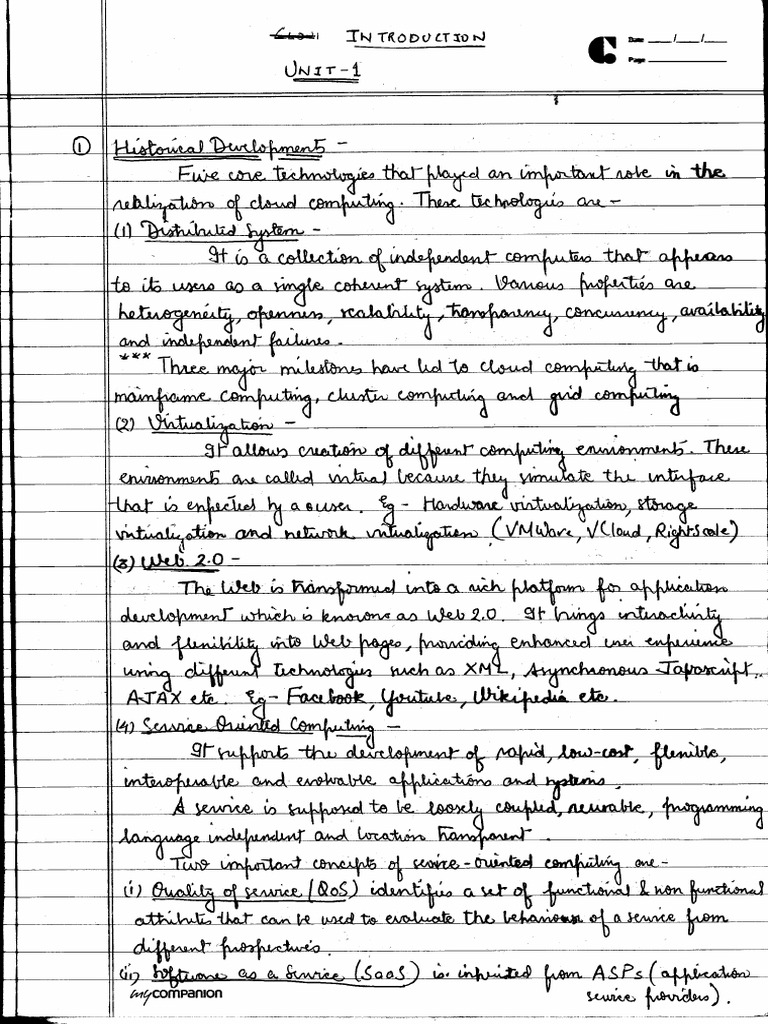 INTRODUCTION
Date
Page
UNIT-1
① Historical Developments -
Five core technologies that played an important role in the
realization of cloud computing. These technologies are -
(1) Distributed System -
It is a collection of independent computers that appears
to its users as a single coherent system. Various properties are
heterogeneity, openness, scalability, transparency, concurrency, availability
and independent failures.
*** Three major milestones have led to cloud computing that is
mainframe computing, cluster computing and grid computing
(2) Virtualization -
It allows creation of different computing environments. These
environments are called virtual because they simulate the interface
that is expected by a user. Eg - Hardware virtualization, storage
virtualization and network virtualization (VMWare, VCloud, RightScale)
(3) Web 2.0 -
The Web is transformed into a rich platform for application
development which is known as Web 2.0. It brings interactivity
and flexibility into Web pages, providing enhanced user experience
using different technologies such as XML, Asynchronous Javascript,
AJAX etc. Eg - Facebook, Youtube, Wikipedia etc.
(4) Service Oriented Computing -
It supports the development of rapid, low-cost, flexible,
interoperable and evolvable applications and systems.
A service is supposed to be loosely coupled, reusable, programming
language independent and location transparent.
Two important concepts of service-oriented computing are -
(i) Quality of service (QoS) identifies a set of functional & non functional
attributes that can be used to evaluate the behaviour of a service from
different prospectives.
(ii) Software as a Service (SaaS) is inherited from ASPs (application
service providers).
mycompanion